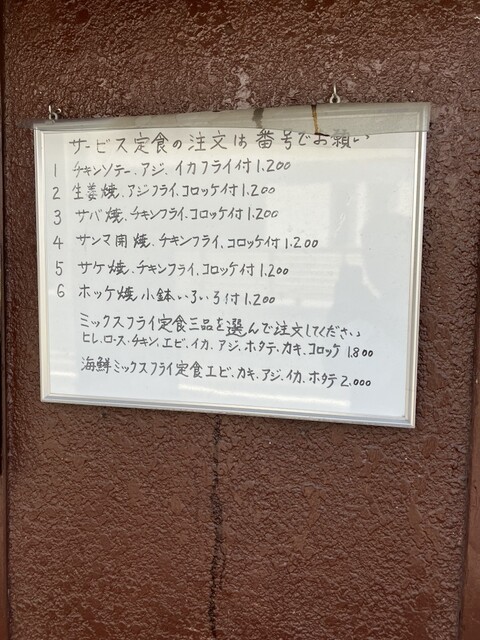 サービス定食の注文は番号でお願い
1 チキンソテー、アジ、イカフライ付1.200
2 生姜焼、アジフライ、コロッケ付1.200
3 サバ焼、チキンフライ、コロッケ付1.200
4 サンマ開焼、チキンフライ、コロッケ付1.200
5 サケ焼、チキンフライ、コロッケ付1.200
6 ホッケ焼小鉢いろいろ付1.200
ミックスフライ定食三品を選んで注文してください
ヒレ、ロース、チキン、エビ、イカ、アジ、ホタテ、カキ、コロッケ 1.800
海鮮ミックスフライ定食エビ、カキ、アジ、イカ、ホタテ 2.000